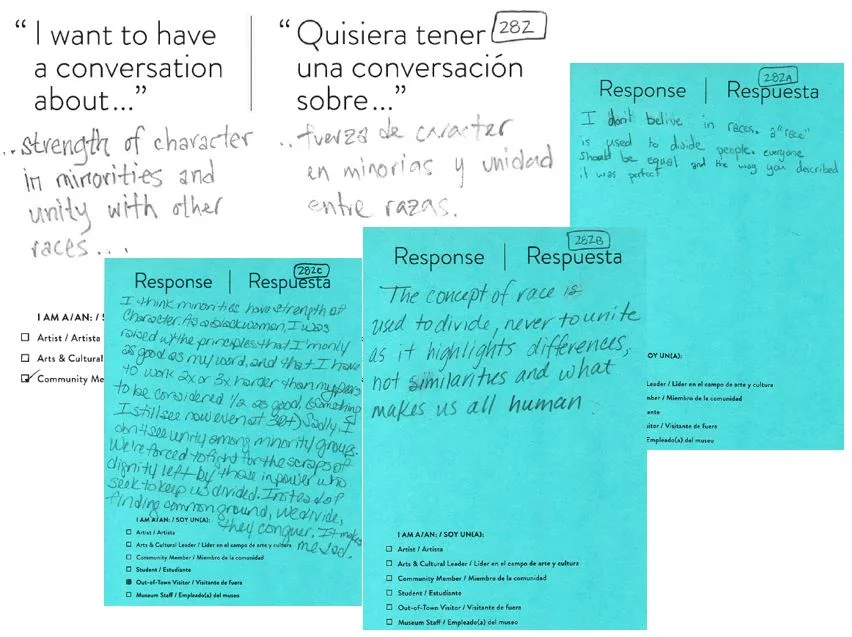 “ I want to have
a conversation
about...”
..strength of character
in minorities and
unity with other
races...
I AM A/AN: / S
Artist / Artista
Arts & Cultural
Community Me
“ Quisiera tener
una conversación
sobre...”
282
..fuerza de caracter
en minorias y unidad
entre razas.
282A
Response | Respuesta
I don't belive in races. a "race"
is used to divide people. everyone
should be equal and the way you described
it was perfect
OY UN(A):
Leader / Líder en el campo de arte y cultura
mber / Miembro de la comunidad
ante
sitor / Visitante de fuera
Empleado(a) del museo
282C
Response | Respuesta
I think minorities have strength of
character. As a black woman, I was
raised w/ the principles that I'm only
as good as my word, and that I have
to work 2x or 3x harder than my peers
to be considered 1/2 as good. (Something
I still see now even at 30+) Sadly, I
don't see unity among minority groups.
We're forced to fight for the scraps of
dignity left by those in power who
seek to keep us divided. Instead of
finding common ground, we divide,
they conquer. It makes
me sad.
I AM A/AN: / SOY UN(A):
Artist / Artista
Arts & Cultural Leader / Líder en el campo de arte y cultura
Community Member / Miembro de la comunidad
Student / Estudiante
Out-of-Town Visitor / Visitante de fuera
Museum Staff / Empleado(a) del museo
282B
Response | Respuesta
The concept of race is
used to divide, never to unite
as it highlights differences,
not similarities and what
makes us all human.
I AM A/AN: / SOY UN(A):
Artist / Artista
Arts & Cultural Leader / Líder en el campo de arte y cultura
Community Member / Miembro de la comunidad
Student / Estudiante
Out-of-Town Visitor / Visitante de fuera
Museum Staff / Empleado(a) del museo